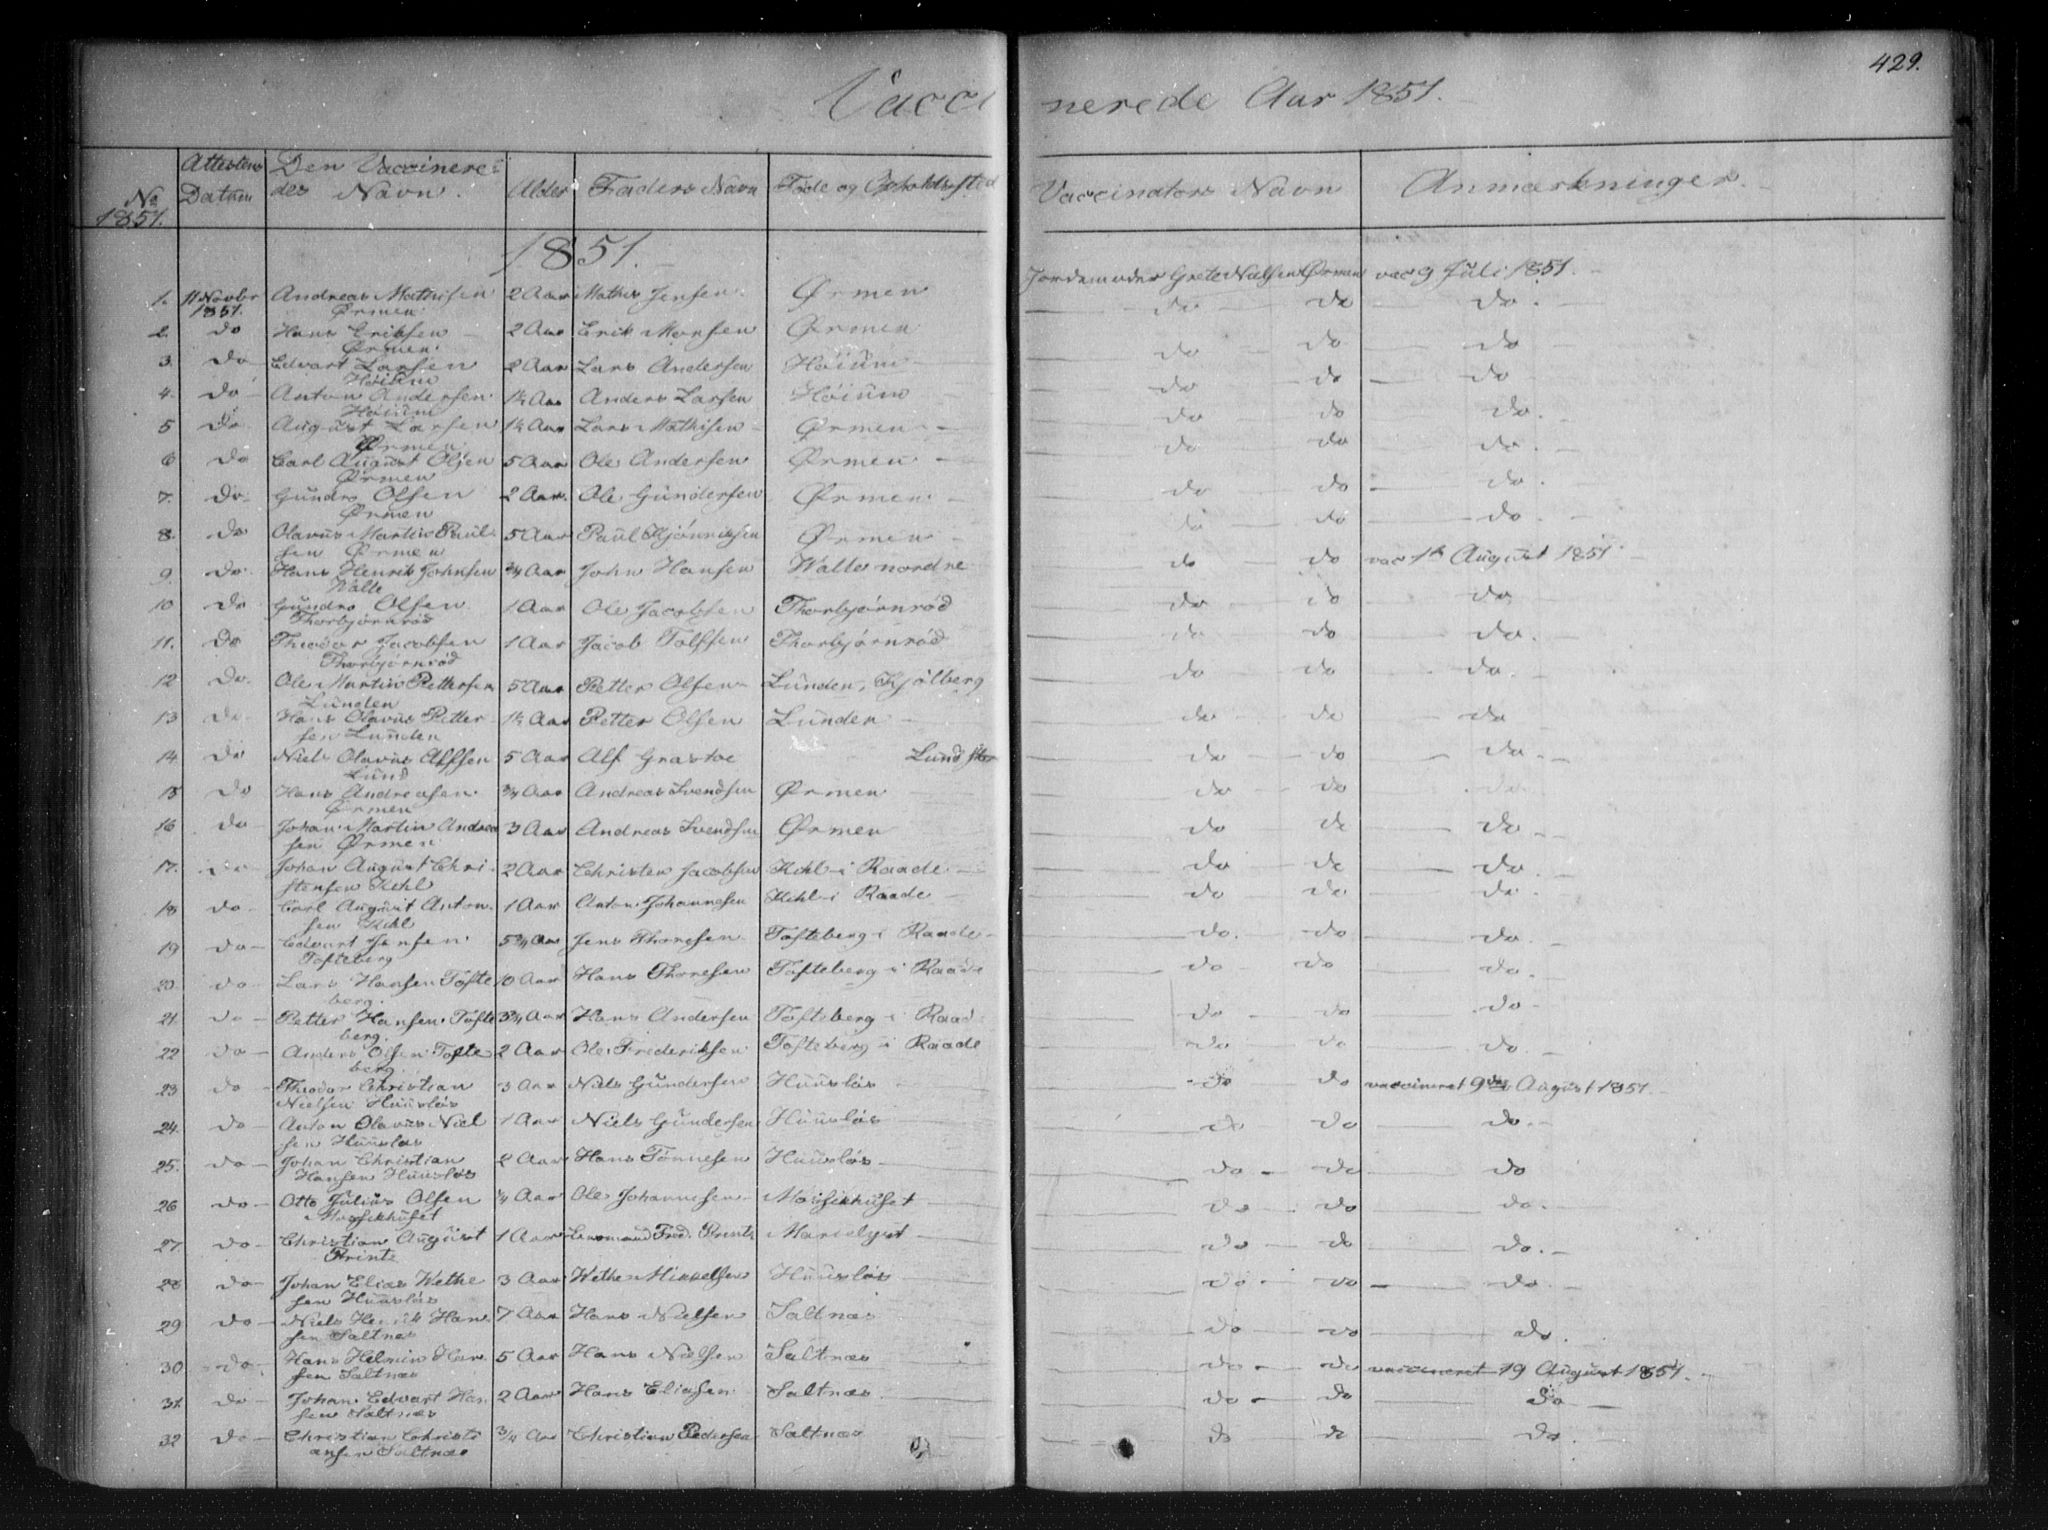 429.
Vaccinerede Aar 1851.
No 1851. Attestens Datum Den Vaccinere- des Navn. Alder Faders Navn Føde og Opholdssted Vaccinators Navn Anmærkninger.
1851.
Jordemoder Grete Nielsen Ørmen vac 9 Juli 1851.
1. 11 Novbr 1851. Andreas Mathisen 2 Aar Mathis Jensen Ørmen do do do.
Ørmen
2. do Hans Eriksen 2 Aar Erik Monsen Ørmen do do do
Ørmen.
3. do Edvart Larsen 2 Aar Lars Andersen Høiüm do do do
Høiüm
4. do Anton Andersen 1½ Aar Anders Larsen Høiüm do do do.
Høiüm
5 do August Larsen 1½ Aar Lars Mathisen Ørmen do do do.
Ørmen.
6 do Carl August Olsen 5 Aar Ole Andersen Ørmen do do do.
Ørmen
7. do Gunder Olsen 2 Aar. Ole Gündersen Ørmen do do do.
Ørmen
8. do Olavüs Martin Paül- 5 Aar Paül Ørmen do do vac 1ste August 1851
sen Ørmen
9 do Hans Henrik Johnsen ¾ Aar John Hansen Walle nordre do do do
Walle
10 do Gunder Olsen 1 Aar Ole Jacobsen Thorbjørnrød do do do.
Thorbjørnrød
11. do Theodor Jacobsen 1 Aar Jacob Tolfsen Thorbjørnrød do do do.
Thorbjørnrød
12 do Ole Martin Pettersen 5 Aar Petter Olsen Lünden, Kjølberg do do do
Lünden
13 do Hans Olavus Petter- 1½ Aar Petter Olsen Lünden do do do.
sen Lunden
14 do Niels Olavus Alfsen 5 Aar Alf Lund do do do.
Lünd
15 do Hans Andreasen ¾ Aar Andreas Svendsen Ørmen do do do.
Ørmen
16 do Johan Martin Andrea 3 Aar Andreas Svendsen Ørmen do do do.
sen Ørmen
17. do Johan August Chri- 2 Aar Christen Jacobsen Kihl i Raade do do do.
stensen Kihl
18 do Carl August Anton- 1 Aar Anton Johannesen Kihl i Raade do do do.
sen Kihl
19 do Edvart Jensen 5¾ Aar Jens Thoresen Tofteberg i Raade do do do.
Tofteberg
20. do Lars Hansen Tofte 10 Aar Hans Thoresen Tofteberg i Raade do do do
berg.
21. do Petter Hansen Tofte 3¾ Aar Hans Andersen Tofteberg i Raade do do do.
berg.
22 do Anders Olsen Tofte 2 Aar Ole Frederiksen Tofteberg i Raade do do vaccineret 9de August 1851.
berg.
23 do Theodor Christian 3 Aar Niels Gündersen Hüüsløs do do do.
Nielsen Hüüsløs
24. do Anton Olavus Niel 1 Aar Niels Gündersen Hüüsløs do do do
sen Hüüsløs
25. do Johan Christian 2 Aar Hans Tønnesen Hüüsløs do do do.
Hansen Hüüsløs
26 do Otto Julius Olsen ¾ Aar Ole Johannesen Musikhuset do do do.
Musikhuset
27. do Christian August 1 Aar Fred. Printz Marielyst do do do.
Printz
28 do Johan Elias Wethe 3 Aar Wethe Mikkelsen Hüüsløs do do do.
sen Hüüsløs
29 do Niels Henrik Han 7 Aar Hans Nielsen Saltnæs do do vaccineret 19 August 1851.
sen Saltnæs
30 do Hans Helmin Han 5 Aar Hans Nielsen Saltnæs do do do
sen Saltnæs
31. do Johan Edvart Han 2 Aar Hans Eliasen Saltnæs do do do.
sen Saltnæs
32 do Christian Christi ¾ Aar Christian Pedersen Saltnæs
ansen Saltnæs